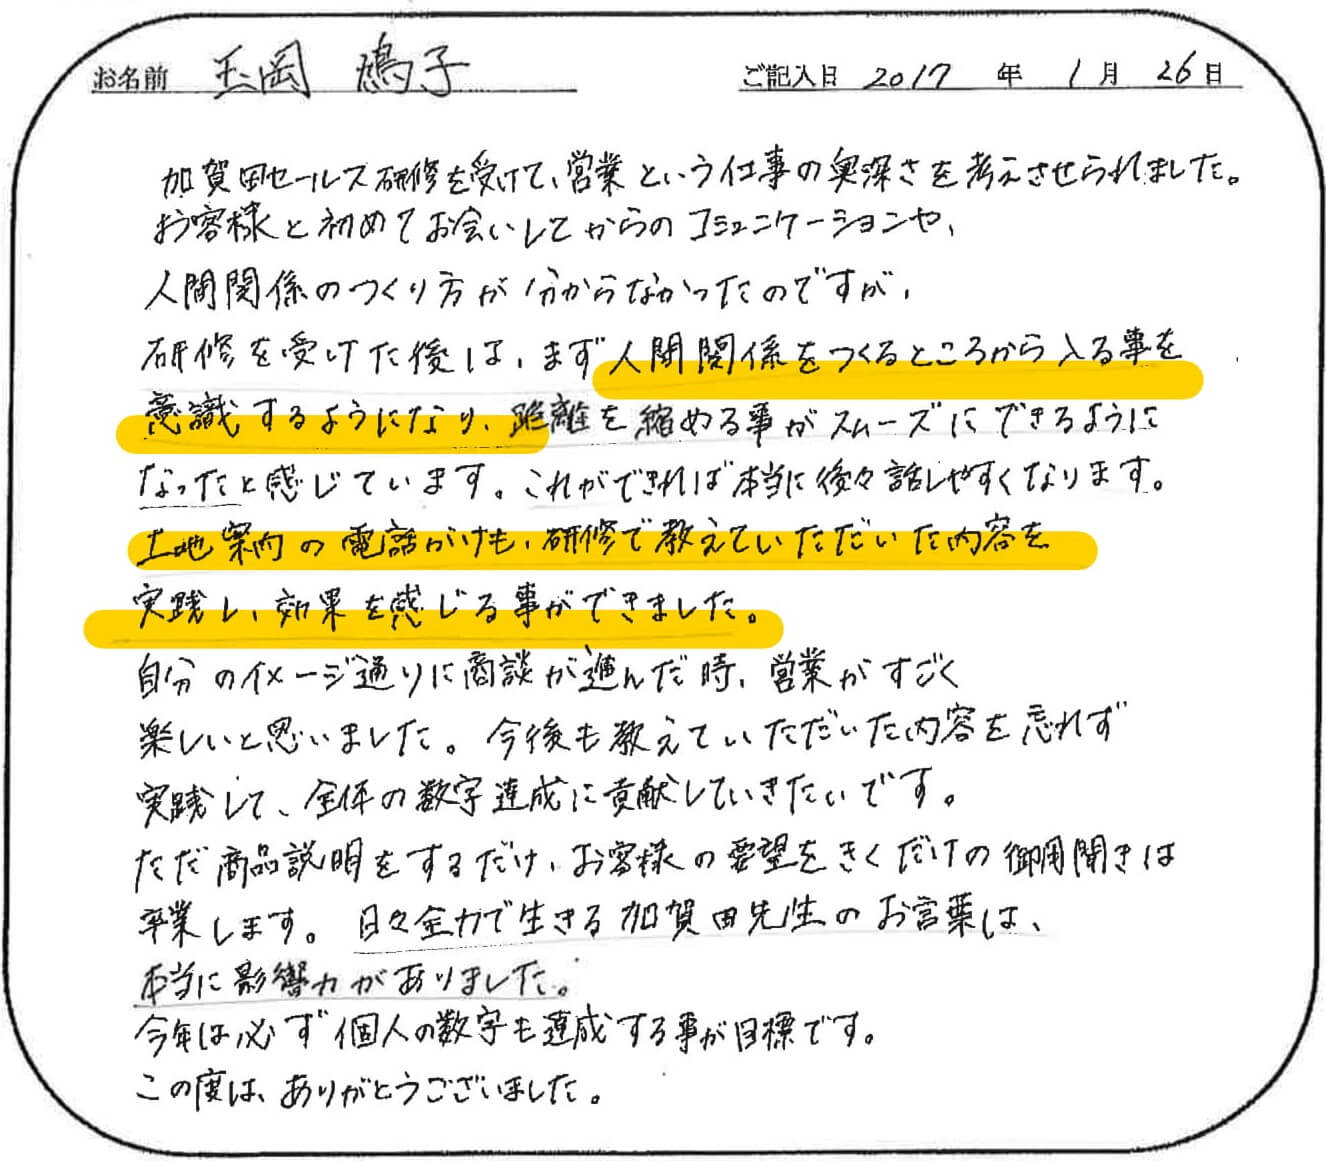 お名前 玉岡 鳰子 ご記入日 2017 年 1 月 26 日
加賀田セールス研修を受けて、営業という仕事の奥深さを考えさせられました。
お客様と初めてお会いしてからのコミュニケーションや、
人間関係のつくり方が分からなかったのですが、
研修を受けた後は、まず人間関係をつくるところから入る事を
意識するようになり、距離を縮める事がスムーズにできるように
なったと感じています。これができれば本当に後々話しやすくなります。
土地案内の電話がけも、研修で教えていただいた内容を
実践し、効果を感じる事ができました。
自分のイメージ通りに商談が進んだ時、営業がすごく
楽しいと思いました。今後も教えていただいた内容を忘れず
実践して、全体の数字達成に貢献していきたいです。
ただ商品説明をするだけ、お客様の要望をきくだけの御用聞きは
卒業します。日々全力で生きる加賀田先生のお言葉は、
本当に影響力がありました。
今年は必ず個人の数字も達成する事が目標です。
この度は、ありがとうございました。